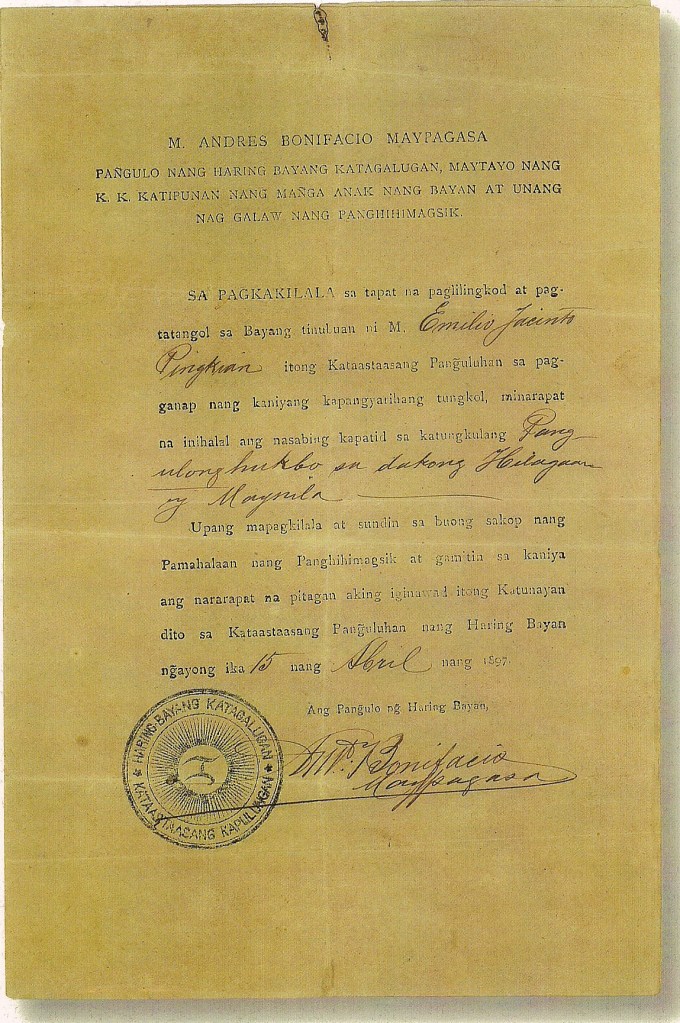 M. ANDRES BONIFACIO MAYPAGASA
PAÑGULO NANG HARING BAYANG KATAGALUGAN, MAYTAYO NANG
K. K. KATIPUNAN NANG MAÑGA ANAK NANG BAYAN AT UNANG
NAG GALAW NANG PANGHIHIMAGSIK.
SA PAGKAKILALA sa tapat na paglilingkod at pag-
tatangol sa Bayang tinubuan ni M. Emilio Jacinto
Pingkian itong Kataastaasang Pang̃uluhan sa pag-
ganap nang kaniyang kapangyarihang tungkol, minarapat
na inihalal ang nasabing kapatid sa katungkulang Pang-
ulong hukbo sa dakong Hilagaan
ng Maynila
Upang mapagkilala at sundin sa buong sakop nang
Pamahalaan nang Panghihimagsik at gamitin sa kaniya
ang nararapat na pitagan aking iginawad itong Katunayan
dito sa Kataastaasang Pang̃uluhan nang Haring Bayan
ng̃ayong ika 15 nang Abril nang 1897.
Ang Pang̃ulo ng̃ Haring Bayan,
HARING-BAYANG KATAGALUGAN
KATAASTAASANG KAPULUNGAN
And. Bonifacio
Maypagasa